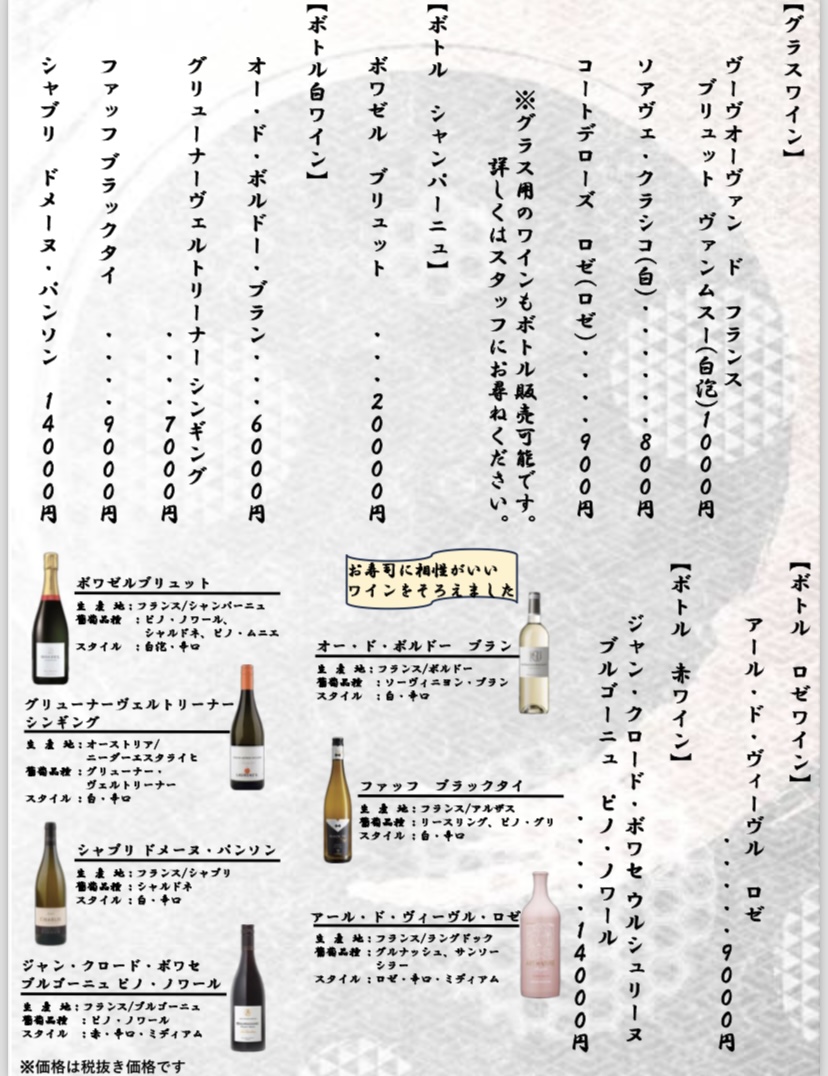 【グラスワイン】
ヴーヴオーヴァン ド フランス
ブリュット ヴァンムスー(白泡)1000円
ソアヴェ・クラシコ(白)・・・・・・800円
コートデローズ ロゼ(ロゼ)・・・・900円
※グラス用のワインもボトル販売可能です。
詳しくはスタッフにお尋ねください。
【ボトル シャンパーニュ】
ボワゼル ブリュット ・・・20000円
【ボトル白ワイン】
オー・ド・ボルドー・ブラン・・・6000円
グリューナーヴェルトリーナー シンギング
・・・・7000円
ファッフ ブラックタイ ・・・・9000円
シャブリ ドメーヌ・パンソン 14000円
【ボトル ロゼワイン】
アール・ド・ヴィーヴル ロゼ
・・・・・9000円
【ボトル 赤ワイン】
ジャン・クロード・ボワセ ウルシュリーヌ
ブルゴーニュ ピノ・ノワール
・・・・・14000円
お寿司に相性がいい
ワインをそろえました
ボワゼルブリュット
生産地:フランス/シャンパーニュ
葡萄品種:ピノ・ノワール、
シャルドネ、ピノ・ムニエ
スタイル:白泡・辛口
グリューナーヴェルトリーナー
シンギング
生産地:オーストリア/
ニーダーエスタライヒ
葡萄品種:グリューナー・
ヴェルトリーナー
スタイル:白・辛口
シャブリ ドメーヌ・パンソン
生産地:フランス/シャブリ
葡萄品種:シャルドネ
スタイル:白・辛口
ジャン・クロード・ボワセ
ブルゴーニュ ピノ・ノワール
生産地:フランス/ブルゴーニュ
葡萄品種:ピノ・ノワール
スタイル:赤・辛口・ミディアム
オー・ド・ボルドー ブラン
生産地:フランス/ボルドー
葡萄品種:ソーヴィニヨン・ブラン
スタイル:白・辛口
ファッフ ブラックタイ
生産地:フランス/アルザス
葡萄品種:リースリング、ピノ・グリ
スタイル:白・辛口
アール・ド・ヴィーヴル・ロゼ
生産地:フランス/ラングドック
葡萄品種:グルナッシュ、サンソー
シラー
スタイル:ロゼ・辛口・ミディアム
※価格は税抜き価格です